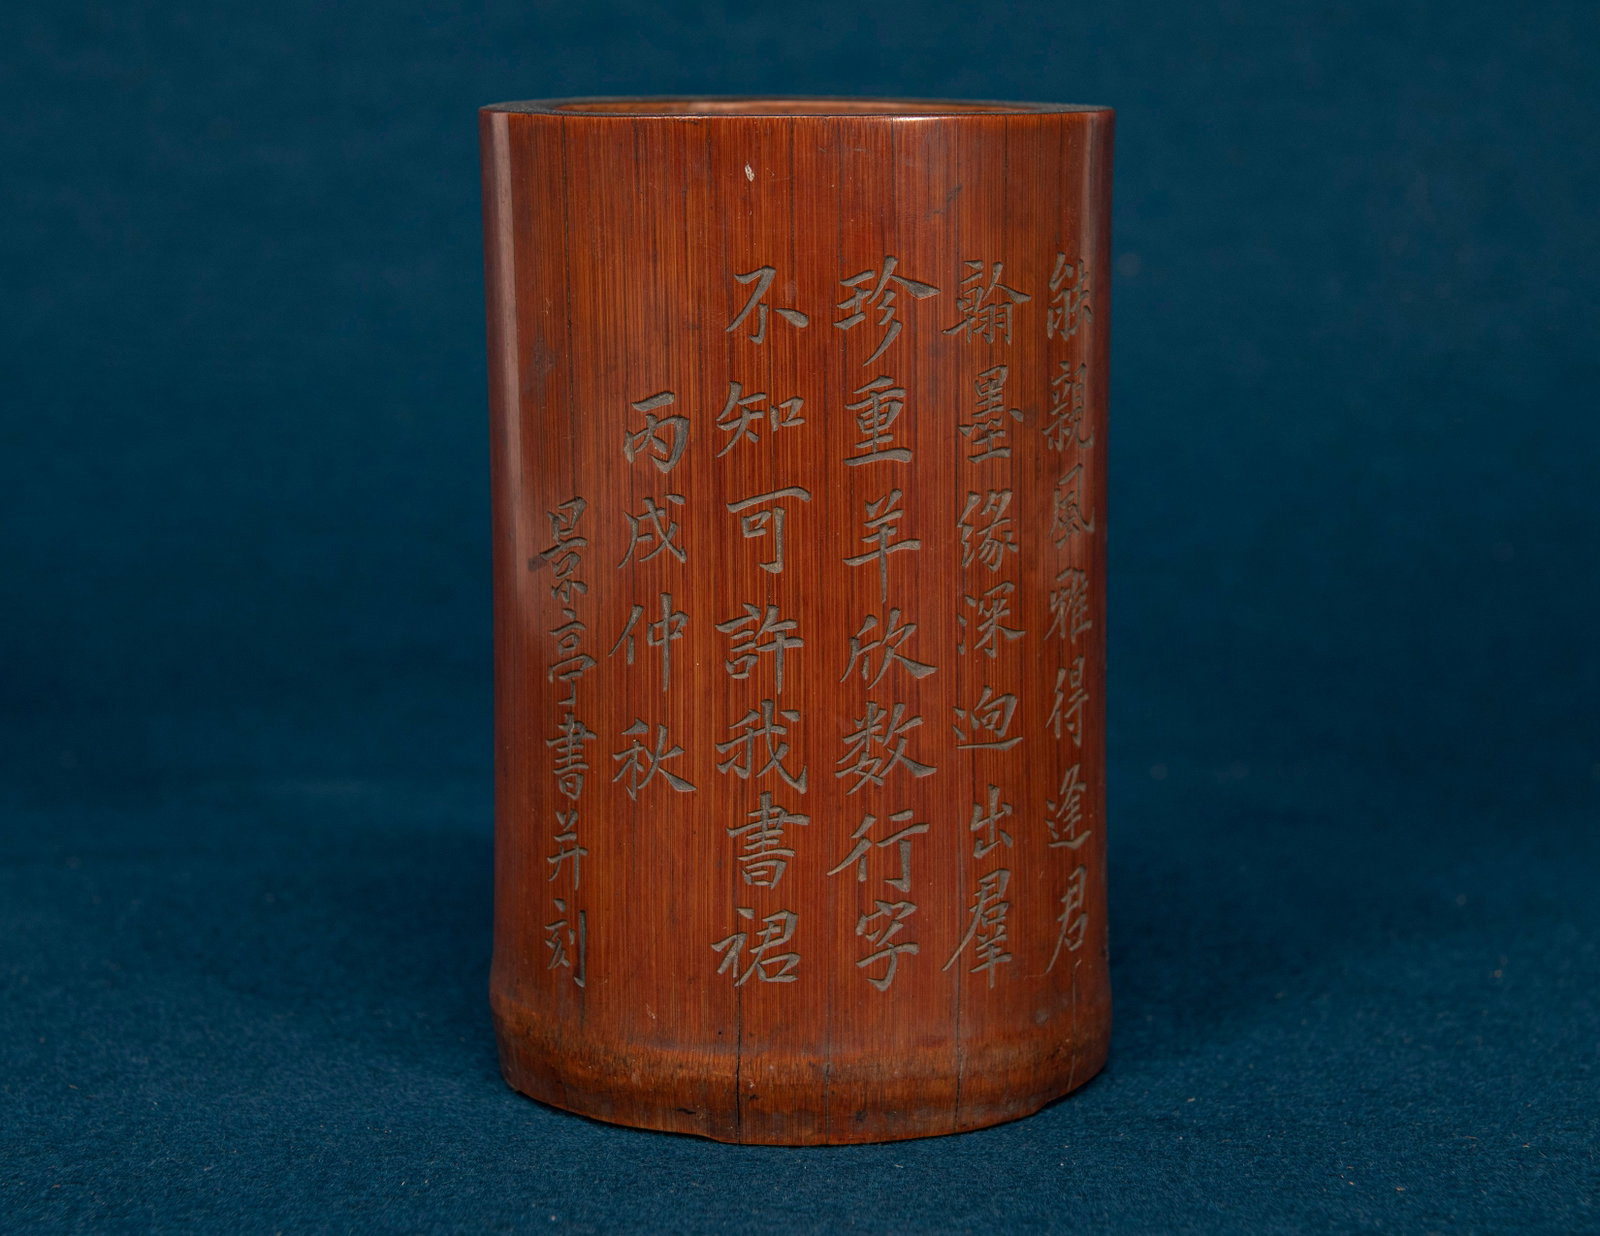 能親風雅得逢君
翰墨緣深迥出羣
珍重羊欣數行字
不知可許我書裙
丙戌仲秋
景亭書并刻